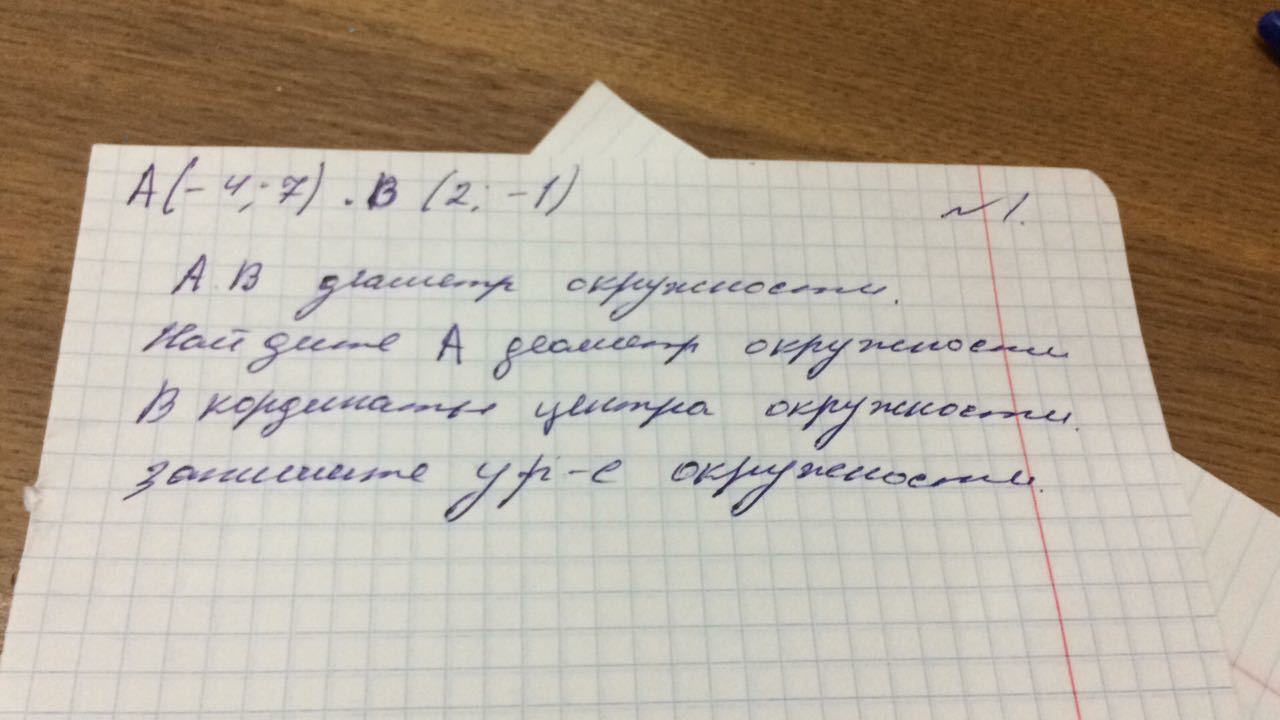 А(-4; 7) . В (2; -1)
№1.
А.В диаметр окружности.
Найдите А деаметр окружности
В кординаты центра окружности.
запишите ур-е окружности.